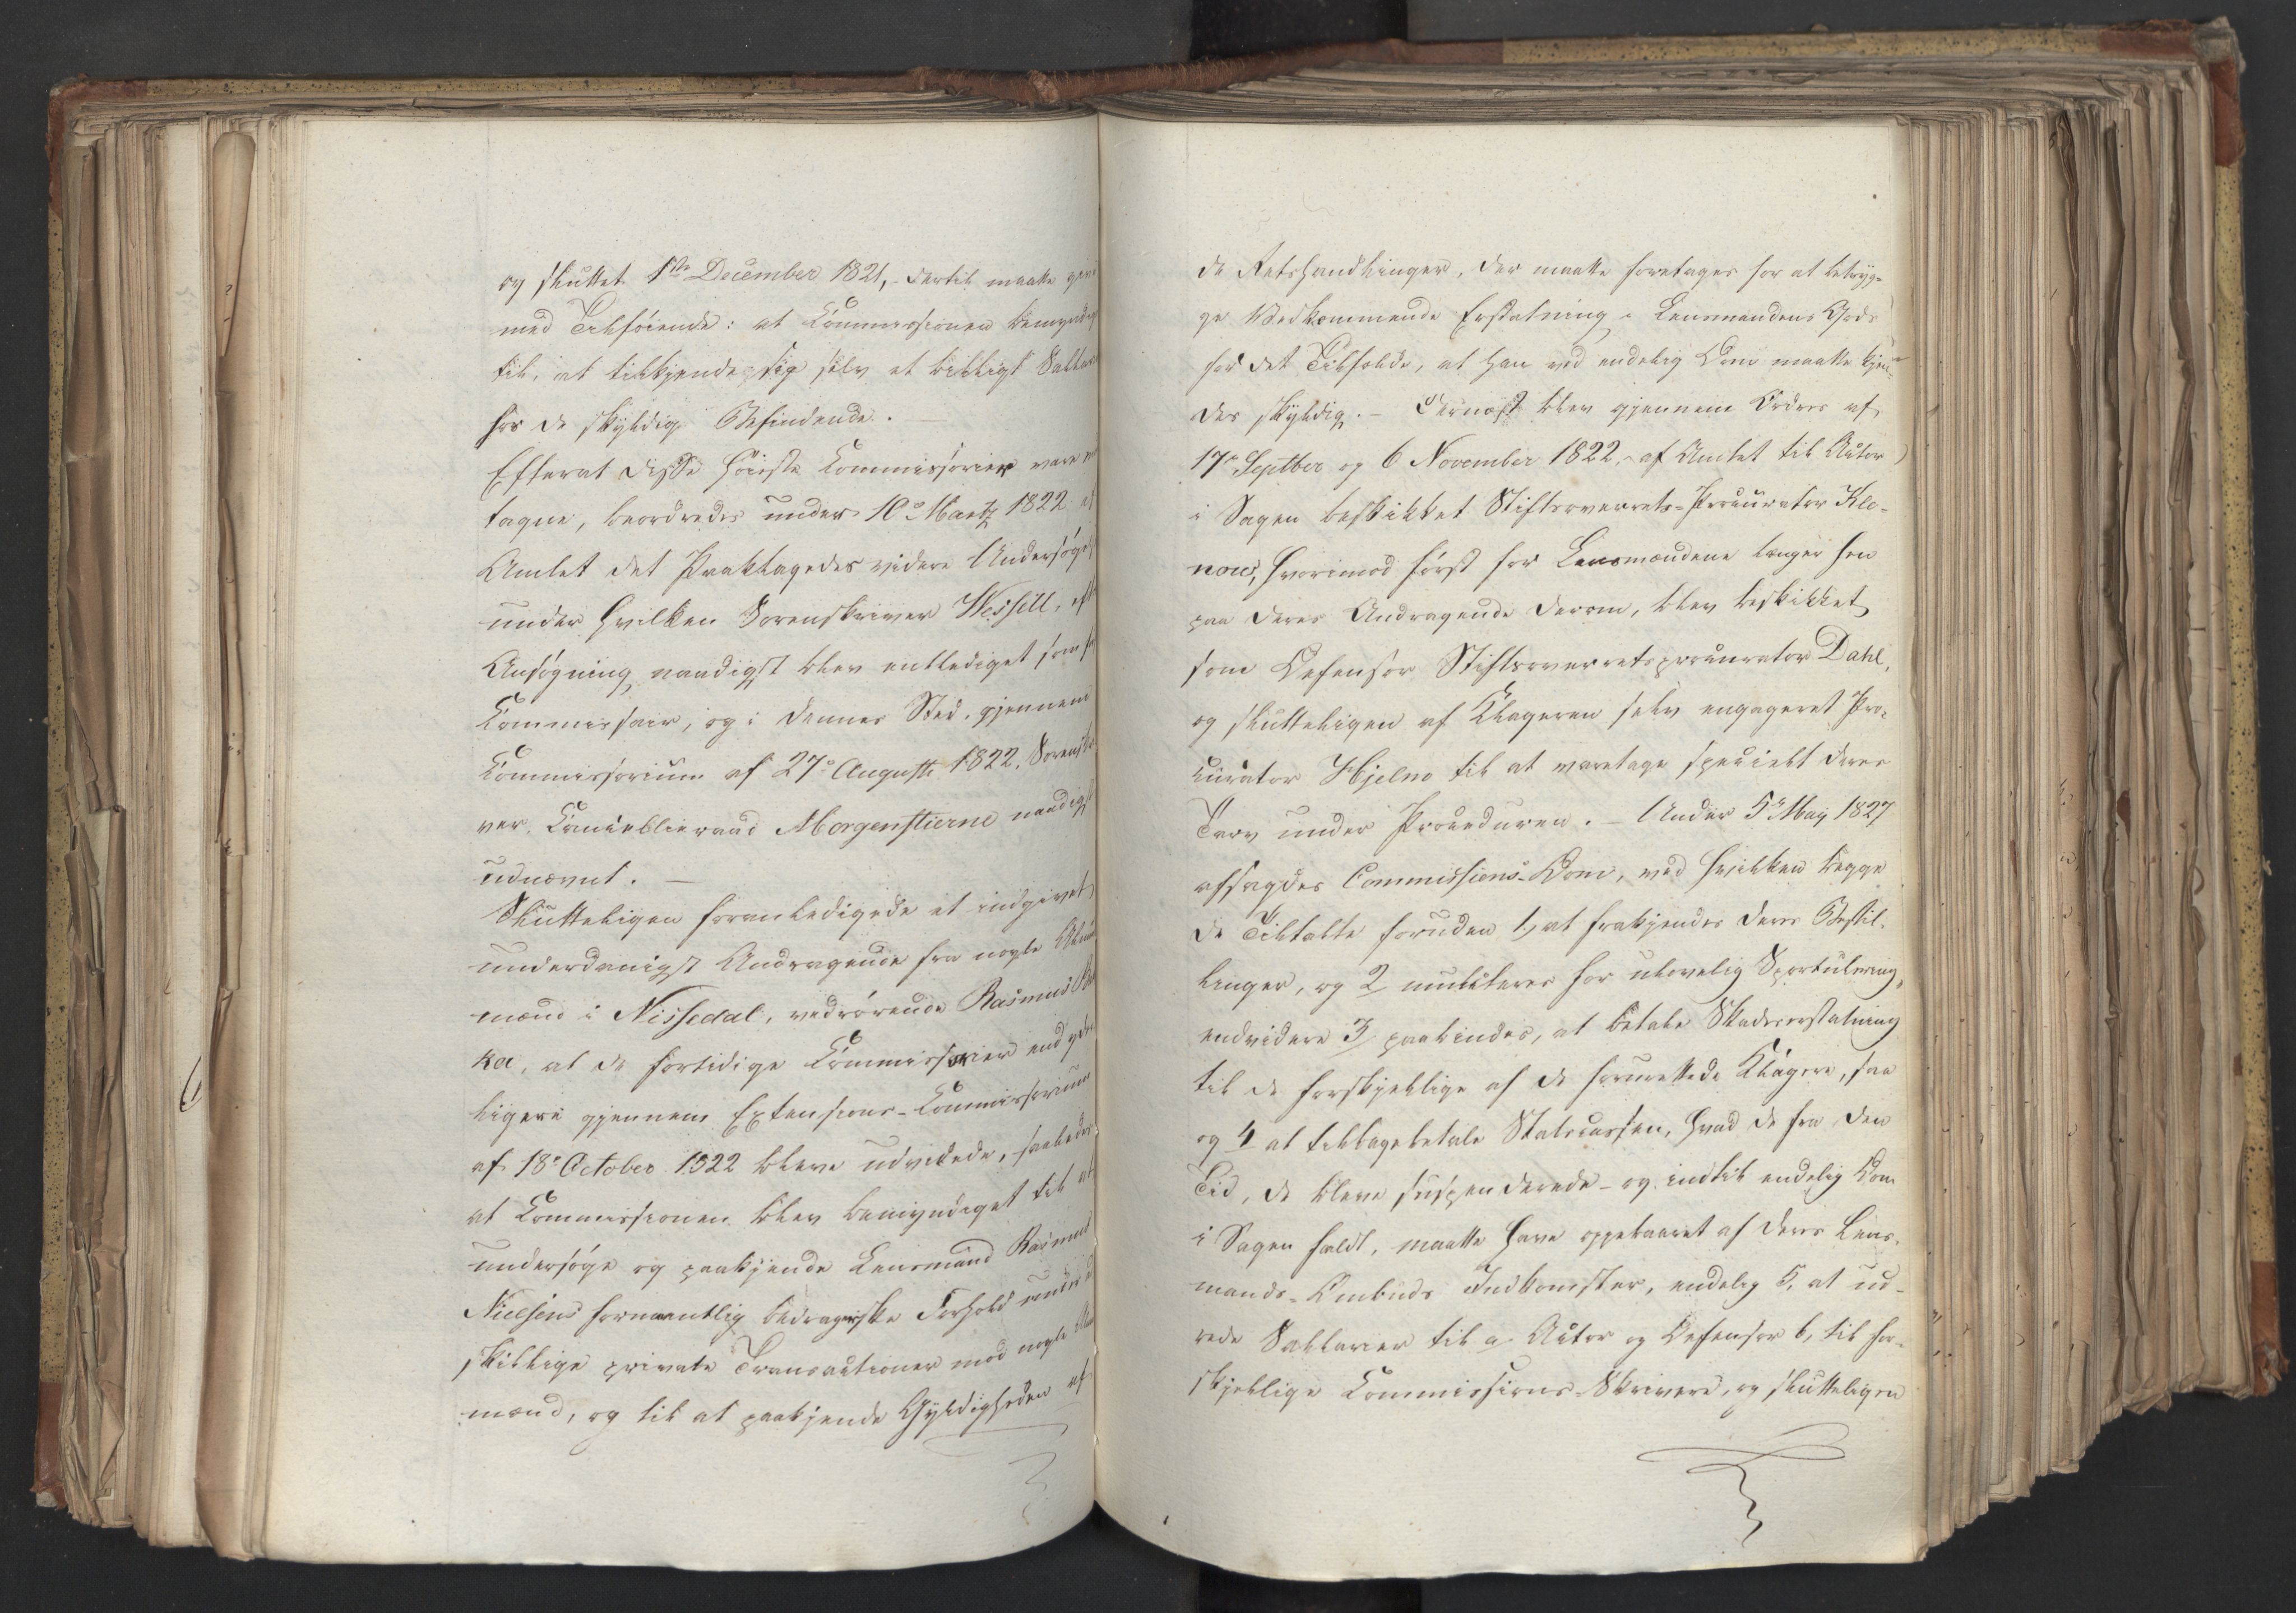 og sluttet 1ste December 1821, dertil maatte
med Tilføiende: at Commissionen bemyndig
til, at tilkjende sig selv et billigt Sallari
hos de skyldig Befindende.
Efterat disse høieste Commissorier vare
tagne, beordredes under 10de Martz 1822 af
Amtet det Paaklagedes videre Undersøgel
under hvilken Sorenskriver Wessell, eft
Ansøgning naadigst blev entlediget som
Commissair, og i dennes Sted, gjennem
Commissorium af 27de Augusti 1822, Sorenskri
ver, Cancellieraad Morgenstierne naadigst
udnævnt. —
Slutteligen foranledigede et indgivet
underdanigst Andragende fra nogle Almu
mænd i Nissedal, vedrørende Rasmus
ka, at de fortidige Commissorier end yder
ligere gjennem Extensions-Commissorium
af 18de October 1822 bleve udvidede, saaledes
at Commissionen blev bemyndiget til at
undersøge og paakjende Lensmand Rasmus
Nielsens formeentlig bedragerske Forhold under
skillige private Transactioner mod nogle
mænd, og til at paakjende Gyldigheden af
de Retshandlinger, der maatte foretages for at betryg-
ge Vedkommende Erstatning i Lensmandens Gods
for det Tilfælde, at han ved endelig Dom maatte kjen-
des skyldig. — Dernæst blev gjennem Ordres af
17de Septber og 6 November 1822, af Amtet til Actor
i Sagen beskikket Stiftsoverrets-Procurator Kle-
now, hvorimod først for Lensmændene længer hen
paa deres Andragende derom, blev beskikket
som Defensor Stiftsoverretsprocurator Dahl,
og slutteligen af Klageren selv engageret Pro-
curator Hjelm til at varetage specielt deres
Tarv under Proceduren. — Under 5te May 1827
afsagdes Commissions-Dom, ved hvilken begge
de Tiltalte foruden 1, at frakjendes deres Bestil-
linger, og 2 mulcteres for ulovelig Sportulering,
endvidere 3, paabindes, at betale Skadeserstatning
til de forskjellige af de forurettede Klagere, saa
og 4 at tilbagebetale Statscassen, hvad de fra den
Tid, de bleve suspenderede - og indtil endelig Dom
i Sagen faldt, maatte have oppebaaret af deres Lens-
mands-Ombuds Indkomster, endelig 5, at ud-
rede Sallarier til a. Actor og Defensor b, til for-
skjellige Commissions-Skrivere, og slutteligen